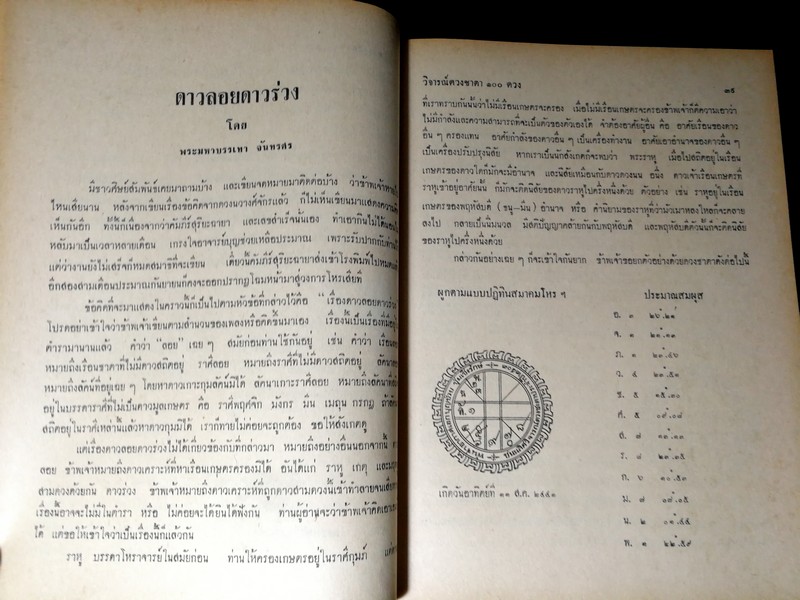 ดาวลอยดาวร่วง
โดย
พระมหาบรรเทา จันทรศร
มีชาวศิษย์สัมพันธ์เคยมาถามบ้าง และเขียนจดหมายมาคิดต่อบ้าง ว่าข้าพเจ้าหายไป
ไหนเสียนาน หลังจากเขียนเรื่องข้อคิดจากดวงวางศ์จักรแล้ว ก็ไม่เห็นเขียนมาแสดงความคิด
เห็นกันอีก ทั้งนี้ก็เนื่องจากว่าคัมภีร์สุริยะฉายา และเลขตำเร็จนั้นเอง ทำเอากินไม่ได้นอนไม่
หลับมาเป็นเวลาหลายเดือน เกรงใจอาจารย์บุญช่วยเหลือประมาณ เพราะรับปากกับท่านไว้
แต่ว่างานยังไม่เสร็จก็หมดสมาธิที่จะเขียน เดี๋ยวนี้คัมภีร์สุริยะฉายาส่งเข้าโรงพิมพ์ไปหมดแล้ว
อีกสองสามเดือนประมาณกันยายนก็คงจะออกปรากฏโฉมหน้ามาสู่วงการโหรเสียที
ข้อคิดที่จะมาแสดงในคราวนี้ก็เป็นไปตามหัวข้อที่กล่าวไว้คือ "เรื่องดาวลอยดาวร่วง"
โปรดอย่าเข้าใจว่าข้าพเจ้าเขียนตามสำนวนของเพลงหรือคิดขึ้นมาเอง เรื่องนี้เป็นเรื่องที่มีอยู่ใน
ตำรามานานแล้ว คำว่า "ลอย" เฉย ๆ สมัยก่อนท่านใช้กันอยู่ เช่น คำว่า เรือน
หมายถึงเรือนชาตาที่ไม่มีดาวสถิตอยู่ ราศีลอย หมายถึงราศีที่ไม่มีดาวสถิตอยู่ ลัคนา
หมายถึงลัคน์ที่อยู่เฉย ๆ โดยหาดาวเกาะกุมลัคน์มิได้ ลัคนาเกาะราศีลอย หมายถึงลัคนาที่สถิต
อยู่ในบรรดาราศีที่ไม่เป็นดาวมูลเกษตร คือ ราศีพฤศจิก มังกร มีน เมถุน กรกฎ ถ้าลัคน์
สถิตอยู่ในราศีเหล่านี้แล้วหาดาวกุมมิได้ เราก็ทายไม่ค่อยจะถูกต้อง ขอให้สังเกตดู
แต่เรื่องดาวลอยดาวร่วงไม่ได้เกี่ยวข้องกับที่กล่าวมา หมายถึงอย่างอื่นนอกจากนี้
ลอย ข้าพเจ้าหมายถึงดาวเคราะห์ที่หาเรือนเกษตรครองมิได้ อันได้แก่ ราหู เกตุ และมฤตยู
สามดวงด้วยกัน ดาวร่วง ข้าพเจ้าหมายถึงดาวเคราะห์ที่ถูกดาวสามดวงนี้เข้าทำลายจนเสีย
เรื่องนี้อาจจะไม่มีในตำรา หรือ ไม่ค่อยจะได้ยินได้ฟังกัน ท่านผู้อ่านจะว่าข้าพเจ้าคิดเอาเอง
ได้ แต่ขอให้เข้าใจว่าเป็นเรื่องนี้ก็แล้วกัน
ราหู บรรดาโหราจารย์ในสมัยก่อน ท่านให้ครองเกษตรอยู่ในราศีกุมภ์
วิจารณ์ดวงชาตา ๑๐๐ ดวง ๓๕
ที่เราทราบกันนั้นว่าไม่มีเรือนเกษตรจะครอง เมื่อไม่มีเรือนเกษตรจะครองข้าพเจ้าก็คิดความเอาว่า
ไม่มีกำลังและความสามารถที่จะเป็นตัวของตัวเองได้ จำต้องอาศัยผู้อื่น คือ อาศัยเรือนของดาว
อื่น ๆ ครองแทน อาศัยกำลังของดาวอื่น ๆ เป็นเครื่องทำงาน อาศัยเอาอำนาจของดาวอื่น ๆ
เป็นเครื่องปรับปรุงนิสัย หากเราเป็นนักสังเกตก็จะพบว่า พระราหู เมื่อไปสถิตอยู่ในเรือน
เกษตรของดาวใดก็มักจะมีอำนาจ และนิสัยเหมือนกับดาวดวงนั้น อนึ่ง ดาวเจ้าเรือนเกษตรที่
ราหูเข้าอยู่อาศัยนั้น ก็มักจะติดนิสัยของดาวราหูไปครึ่งหนึ่งด้วย ตัวอย่าง เช่น ราหูอยู่ในเรือน
เกษตรของพฤหัสบดี (ธนู-มีน) อำนาจ หรือ คำนิยามของราหูที่ว่ามัวเมาหลงใหลก็จะคลาย
ลงไป กลายเป็นนิ่มนวล มีสติปัญญาคล้ายกันกับพฤหัสบดี และพฤหัสบดีตัวนั้นก็จะติดนิสัย
ของราหูไปครึ่งหนึ่งด้วย
กล่าวกันอย่างเฉย ๆ ก็จะเข้าใจกันยาก ข้าพเจ้าขอยกตัวอย่างด้วยดวงชาตาดังต่อไปนี้
ผูกตามแบบปฏิทินสมาคมโหร ฯ ประมาณสมผุส
เกิดวันอาทิตย์ที่ ๑๑ ส.ค. ๒๔๔๑
อ. ๓
จ. ๑
ภ. ๑
ว. ๔
ช. ๕
ศ. ๕
ส. ๗
ร. ๘
ก. ๖
ม. ๗
น. ๒
พ. ๑